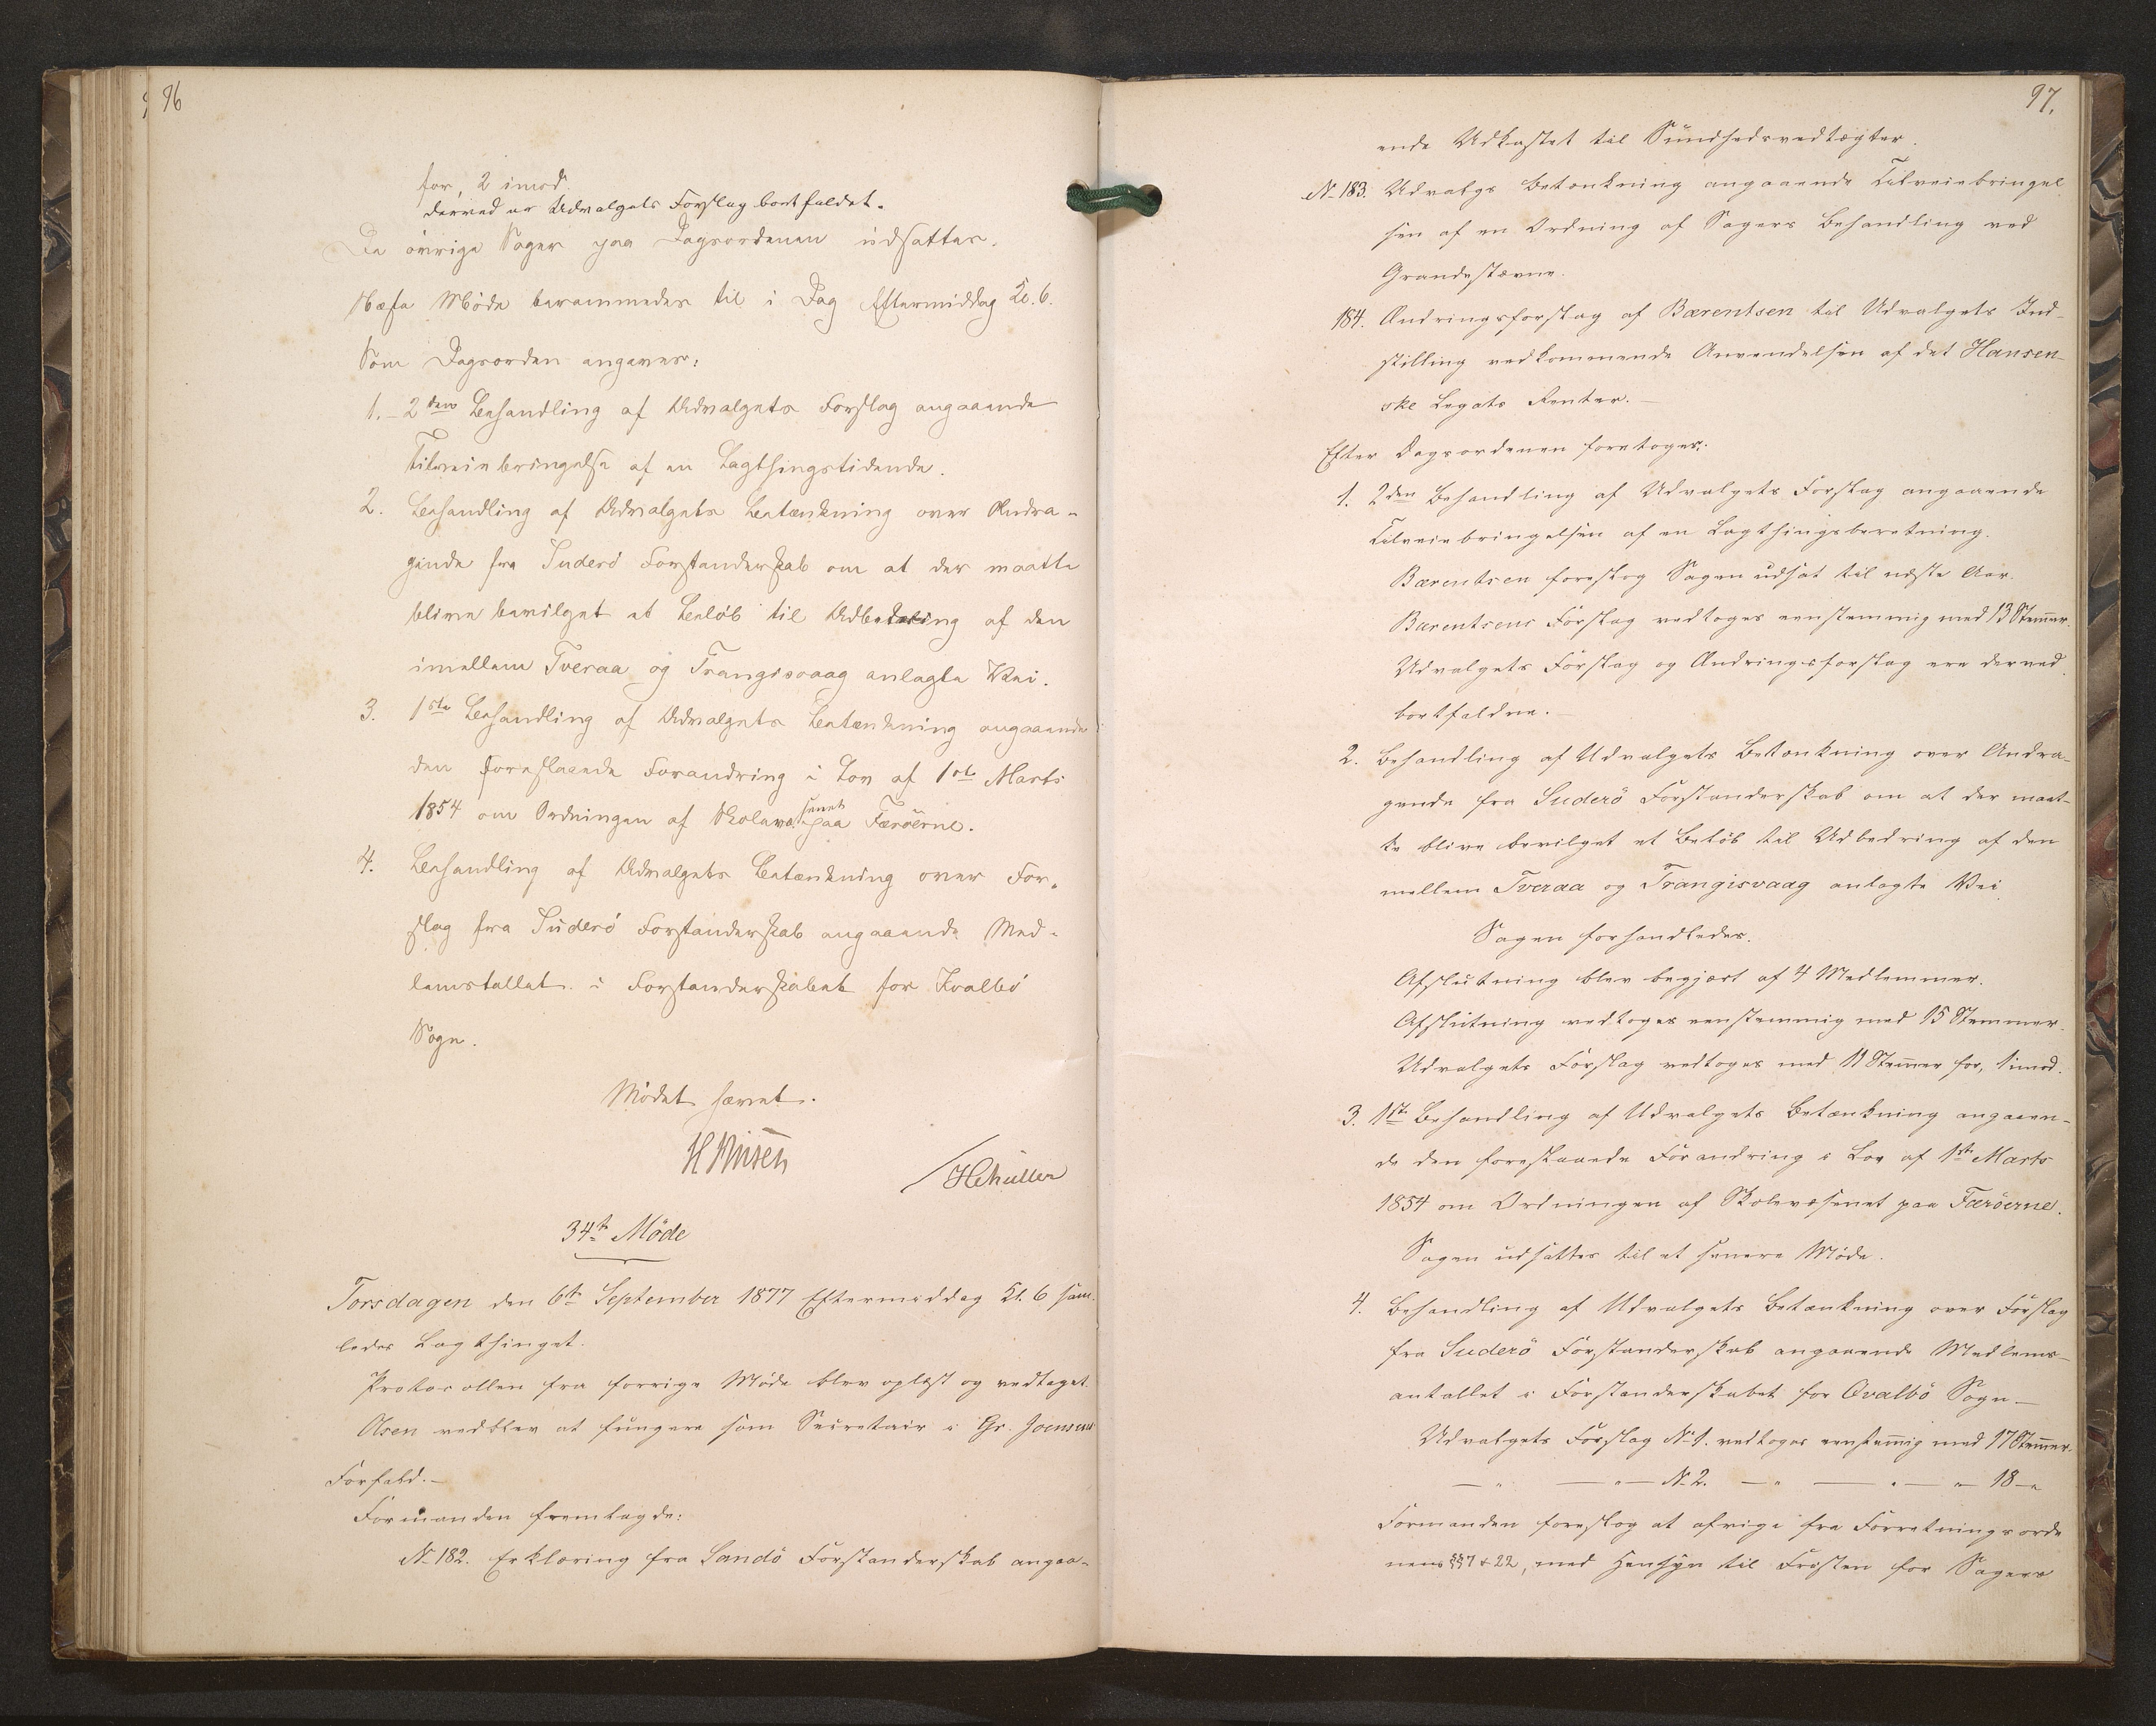 96
for, 2 imod.
derved er Udvalgets Forslag bortfaldet.
De övrige Sager paa Dagsordenen udsattes.
Næste Möde berammedes til i Dag Eftermiddag Kl. 6.
Som Dagsorden angaves:
1. 2den Behandling af Udvalgets Forslag angaaende
Tilveiebringelse af en Lagthingstidende.
2. Behandling af Udvalgets Betænkning over Andra-
gende fra Suderö Forstanderskab om at der maatte
blive bevilget et Beløb til Udbedring af den
imellem Tveraa og Trangisvaag anlagte Vei.
3. 1ste Behandling af Udvalgets Betænkning angaaende
den foreslaaede Forandring i Lov af 1ste Marts
1854 om Ordningen af Skolevæsenet paa Færöerne.
4. Behandling af Udvalgets Betænkning over For-
slag fra Suderö Forstanderskab angaaende Med-
lemstallet i Forstanderskabet for Kvalbö
Sogn.
Mödet hævet.
HMüller
34te Möde
Torsdagen den 6te September 1877 Eftermiddag Kl. 6 sam-
ledes Lagthinget.
Protocollen fra forrige Möde blev oplæst og vedtaget.
Olsen vedblev at fungere som Secretair i Gr. Joensens
Forfald.
Formanden fremlagde:
No 182. Erklæring fra Sandö Forstanderskab angaa-
97.
ende Udkastet til Sundhedsvedtægter.
No 183. Udvalgs Betænkning angaaende Tilveiebringel
sen af en Ordning af Sagers Behandling ved
Grandestævne.
184. Ændringsforslag af Bærentsen til Udvalgets Ind-
stilling vedkommende Anvendelsen af det Hansen-
ske Legats Renter.
Efter Dagsordenen foretoges:
1. 2den Behandling af Udvalgets Forslag angaaende
Tilveiebringelsen af en Lagthingsberetning.
Bærentsen foreslog Sagen udsat til næste Aar.
Bærentsens Forslag vedtoges eenstemmig med 13 Stemmer.
Udvalgets Forslag og Ændringsforslag ere derved
bortfaldne.
2. Behandling af Udvalgets Betænkning over Andra-
gende fra Suderö Forstanderskab om at der maat-
te blive bevilget et Beløb til Udbedring af den
mellem Tveraa og Trangisvaag anlagte Vei.
Sagen forhandledes.
Afslutning blev begjært af 4 Medlemmer.
Afslutning vedtoges eenstemmig med 15 Stemmer.
Udvalgets Forslag vedtoges med 11 Stemmer for, 1 imod.
3. 1ste Behandling af Udvalgets Betænkning angaaen-
de den foreslaaede Forandring i Lov af 1ste Marts
1854 om Ordningen af Skolevæsenet paa Færöerne.
Sagen udsattes til et senere Möde.
4. Behandling af Udvalgets Betænkning over Forslag
fra Suderö Forstanderskab angaaende Medlems-
antallet i Forstanderskabet for Qvalbö Sogn
Udvalgets Forslag No 1. vedtoges eenstemmig med 17 Stemmer.
— " — " — No 2. — " — " — " — 18 — "
Formanden foreslog at afvige fra Forretningsorde
nens §§7 & 22, med Hensyn til Fristen for Sagers